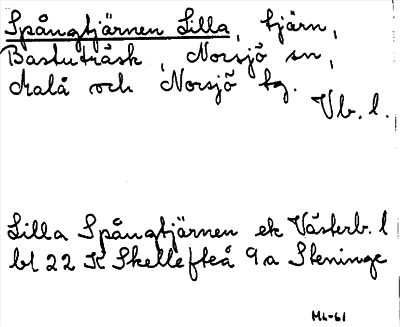 Spångtjärnen Lilla, tjärn,
Bastuträsk, Norsjö sn,
Malå och Norsjö tg.
Vb. l.
Lilla Spångtjärnen ek Västerb. l
bl 22 K Skellefteå 9a Steninge
Ml-61